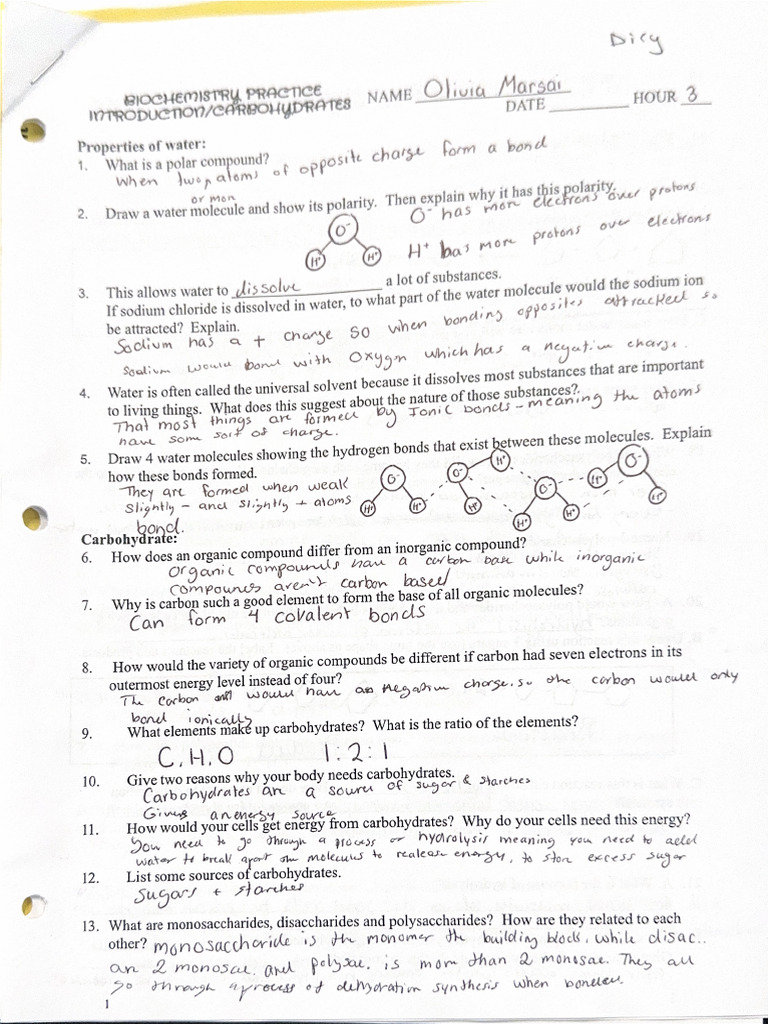 Dicy
BIOCHEMISTRY PRACTICE NAME Olivia Marsai
INTRODUCTION/CARBOHYDRATES DATE ________ HOUR 3
Properties of water:
1. What is a polar compound?
When two atoms of opposite charge form a bond
or mon
2. Draw a water molecule and show its polarity. Then explain why it has this polarity.
O⁻ has more electrons over protons
O⁻
H⁺ H⁺
H⁺ has more protons over electrons
3. This allows water to dissolve a lot of substances.
If sodium chloride is dissolved in water, to what part of the water molecule would the sodium ion
be attracted? Explain.
Sodium has a + charge so when bonding opposites attracked so
sodium would bond with Oxygn which has a negative charge.
4. Water is often called the universal solvent because it dissolves most substances that are important
to living things. What does this suggest about the nature of those substances?
That most things are formed by Ionic bonds - meaning the atoms
have some sort of charge.
5. Draw 4 water molecules showing the hydrogen bonds that exist between these molecules. Explain
how these bonds formed.
They are formed when weak
slightly - and slightly + atoms
bond.
O⁻ O⁻ H⁺ O⁻ H⁺ O⁻
H⁺ H⁺ H⁺ H⁺ H⁺ H⁺
Carbohydrate:
6. How does an organic compound differ from an inorganic compound?
Organic compounds have a carbon base while inorganic
compounds aren't carbon based
7. Why is carbon such a good element to form the base of all organic molecules?
Can form 4 covalent bonds
8. How would the variety of organic compounds be different if carbon had seven electrons in its
outermost energy level instead of four?
The carbon would have a negative charge. so the carbon would only
bond ionically
9. What elements make up carbohydrates? What is the ratio of the elements?
C, H, O 1:2:1
10. Give two reasons why your body needs carbohydrates.
Carbohydrates are a source of sugar & starches
Gives an energy source
11. How would your cells get energy from carbohydrates? Why do your cells need this energy?
You need to go through a process or hydrolysis meaning you need to add
water to break apart the molecules to realease energy, to store excess sugar
12. List some sources of carbohydrates.
Sugars + starches
13. What are monosaccharides, disaccharides and polysaccharides? How are they related to each
other? monosaccharide is the monomer the building block, while disac..
are 2 monosac. and polysac. is more than 2 monosac. They all
go through a process of dehydration synthesis when bonded.
1